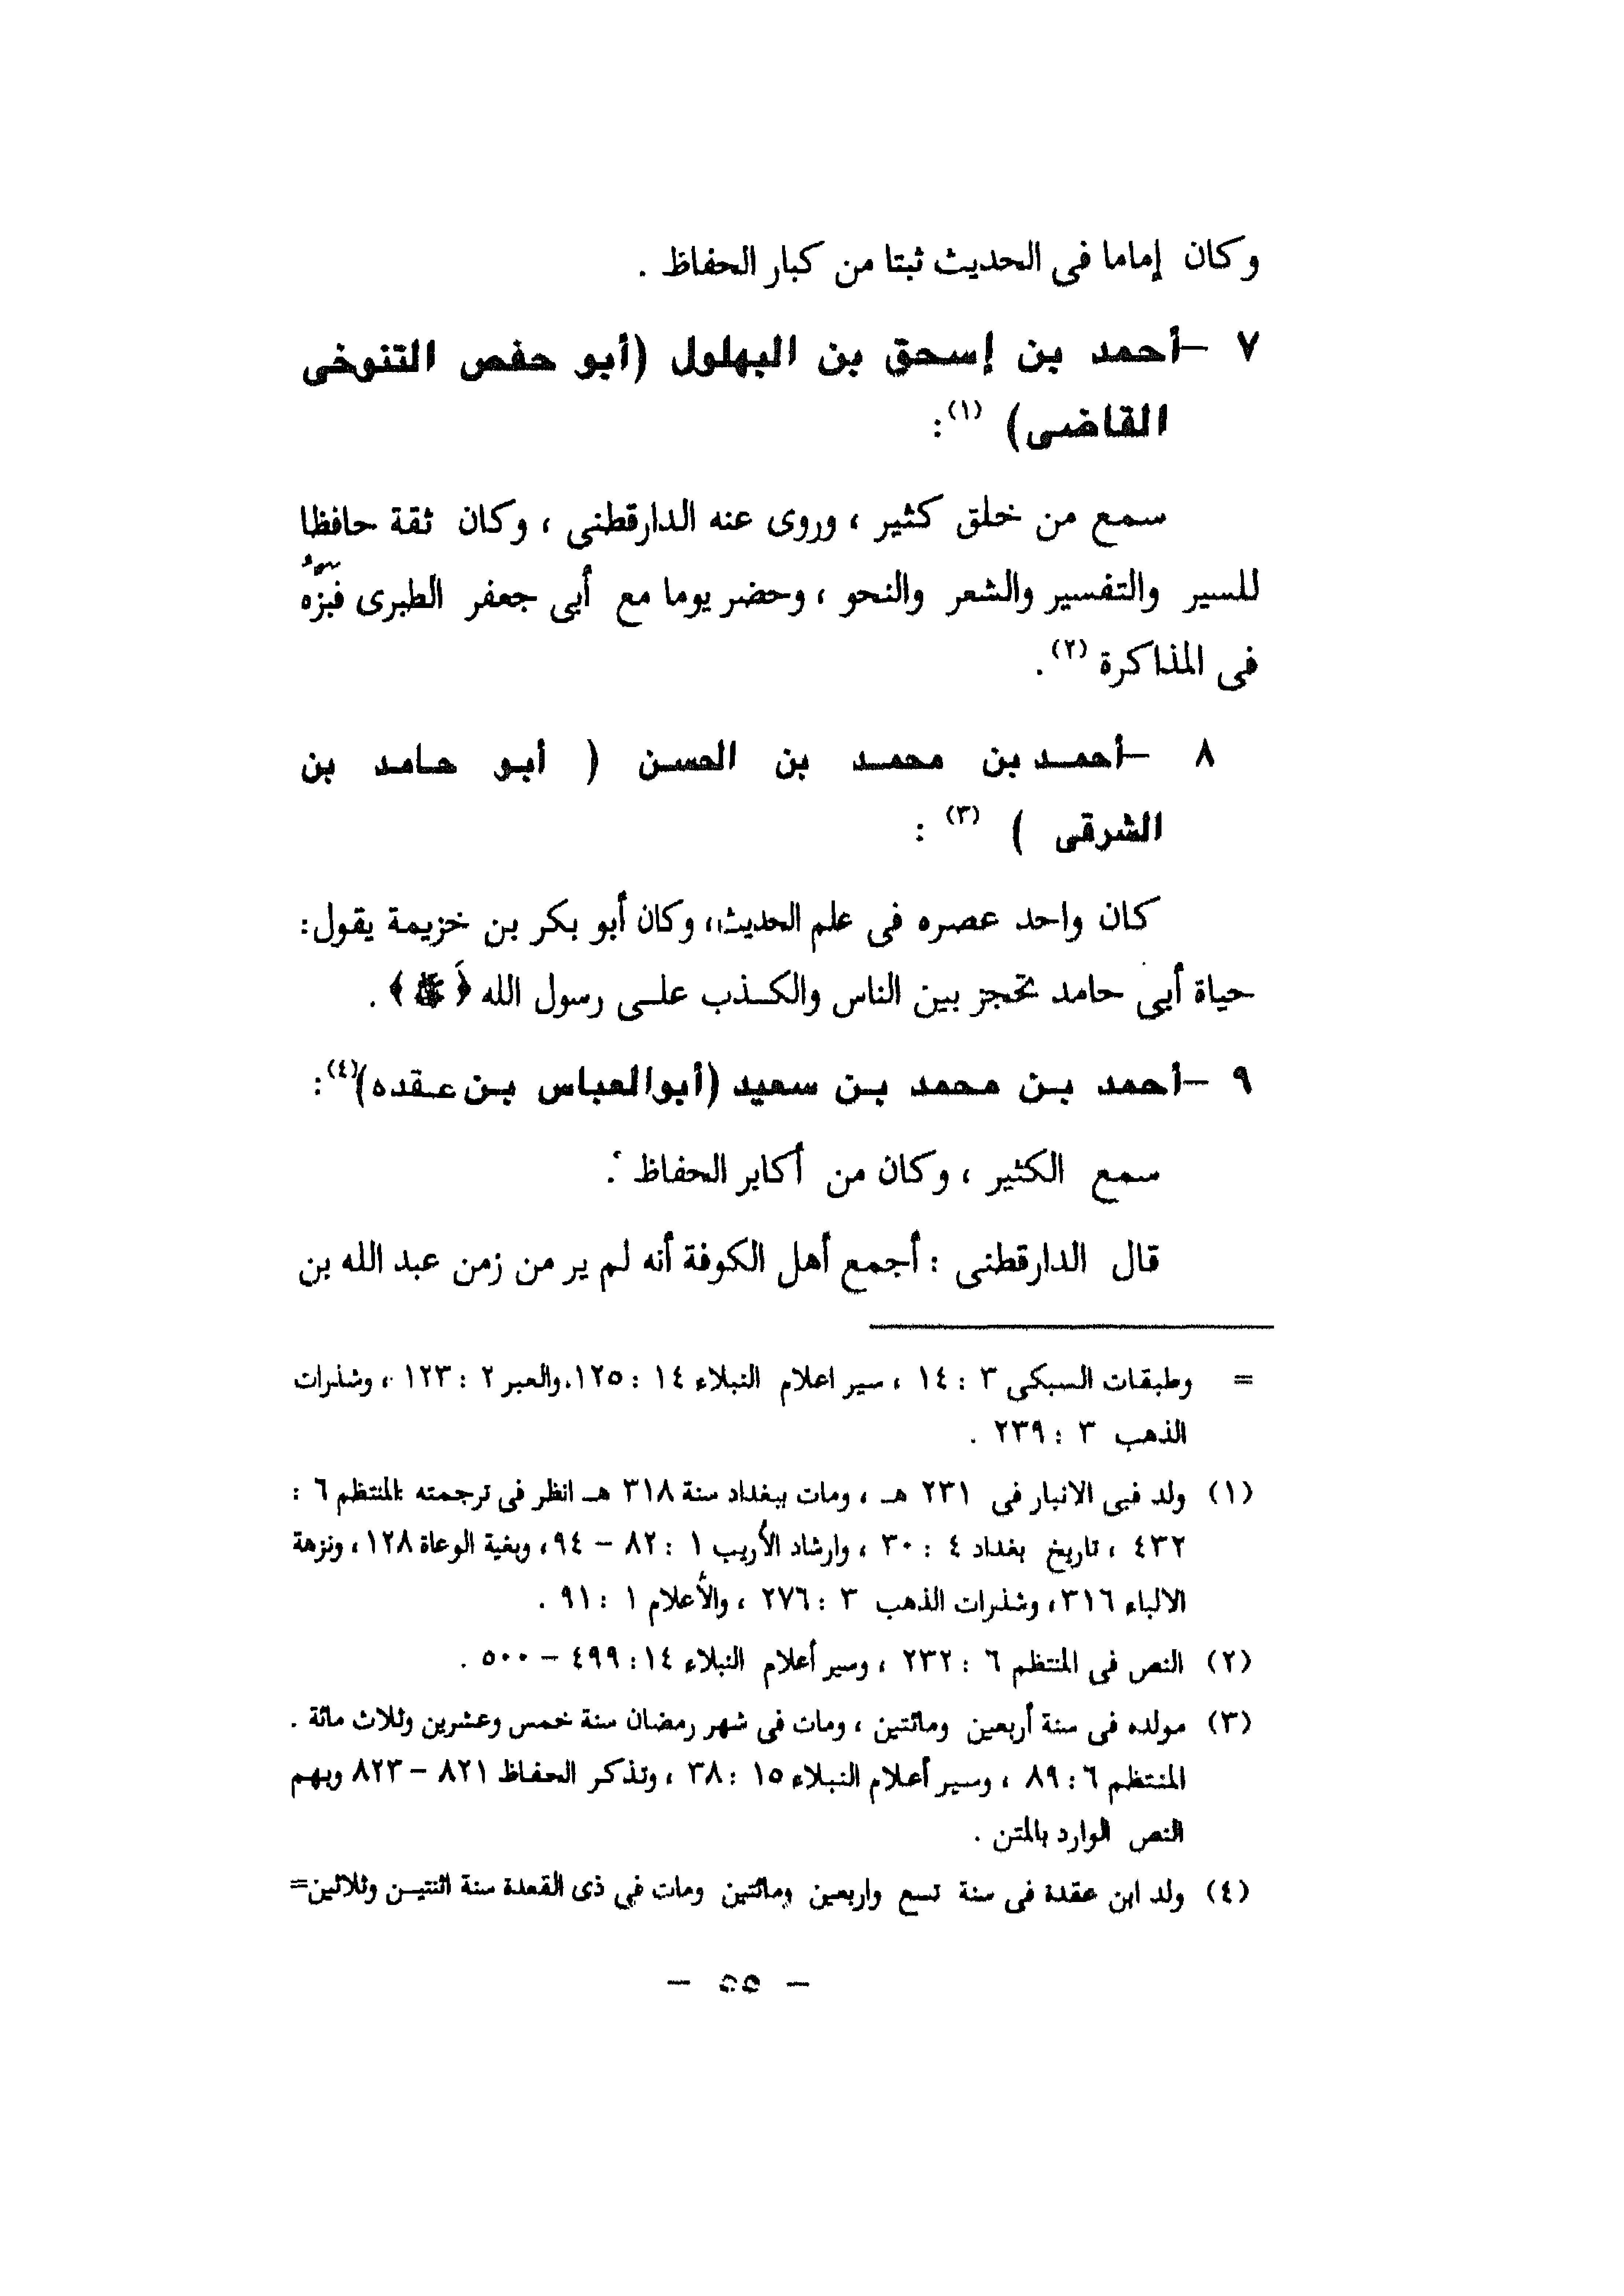 وكان إماما فى الحديث ثبتا من كبار الحفاظ .
٧ –أحمد بن إسحق بن البهلول (أبو حفص التنوخى
القاضى) (١) :
سمع من خلق كثير ، وروى عنه الدارقطنى ، وكان ثقة حافظا
للسير والتفسير والشعر والنحو ، وحضر يوما مع أبى جعفر الطبرى فَبَزَّهُ
فى المذاكرة (٢) .
٨ –أحمد بن محمد بن الحسن ( أبو حامد بن
الشرقى ) (٣) :
كان واحد عصره فى علم الحديث، وكان أبو بكر بن خزيمة يقول:
حياة أبى حامد تحجز بين الناس والكذب على رسول الله ﴿ ﷺ ﴾ .
٩ –أحمد بن محمد بن سعيد (أبوالعباس بن عقده)(٤):
سمع الكثير ، وكان من أكابر الحفاظ .
قال الدارقطنى : أجمع أهل الكوفة أنه لم ير من زمن عبد الله بن
= وطبقات السبكى ٣ : ١٤ ، سير اعلام النبلاء ١٤ : ١٢٥.والعبر ٢ : ١٢٣ ، وشذرات
الذهب ٣ : ٢٣٩ .
(١) ولد فبى الانبار فى ٢٣١ هـ ، ومات ببغداد سنة ٣١٨ هـ انظر فى ترجمته المنتظم ٦ :
٤٣٢ ، تاريخ بغداد ٤ : ٣٠ ، وارشاد الأريب ١ : ٨٢ – ٩٤، وبغية الوعاة ١٢٨ ، ونزهة
الالباء ٣١٦، وشذرات الذهب ٣ : ٢٧٦ ، والأعلام ١ : ٩١ .
(٢) النص فى المنتظم ٦ : ٢٣٢ ، وسير أعلام النبلاء ١٤ : ٤٩٩ – ٥٠٠ .
(٣) مولده فى سنة أربعين ومائتين ، ومات فى شهر رمضان سنة خمس وعشرين وثلاث مائة .
المنتظم ٦ : ٨٩ ، وسير أعلام النبلاء ١٥ : ٣٨ ، وتذكر الحفاظ ٨٢١ – ٨٢٣ وبهم
النص الوارد بالمتن .
(٤) ولد ابن عقدة فى سنة تسع واربعين ومائتين ومات فى ذى القعدة سنة اثنتيـن وثلاثين=
– ٥٥ –